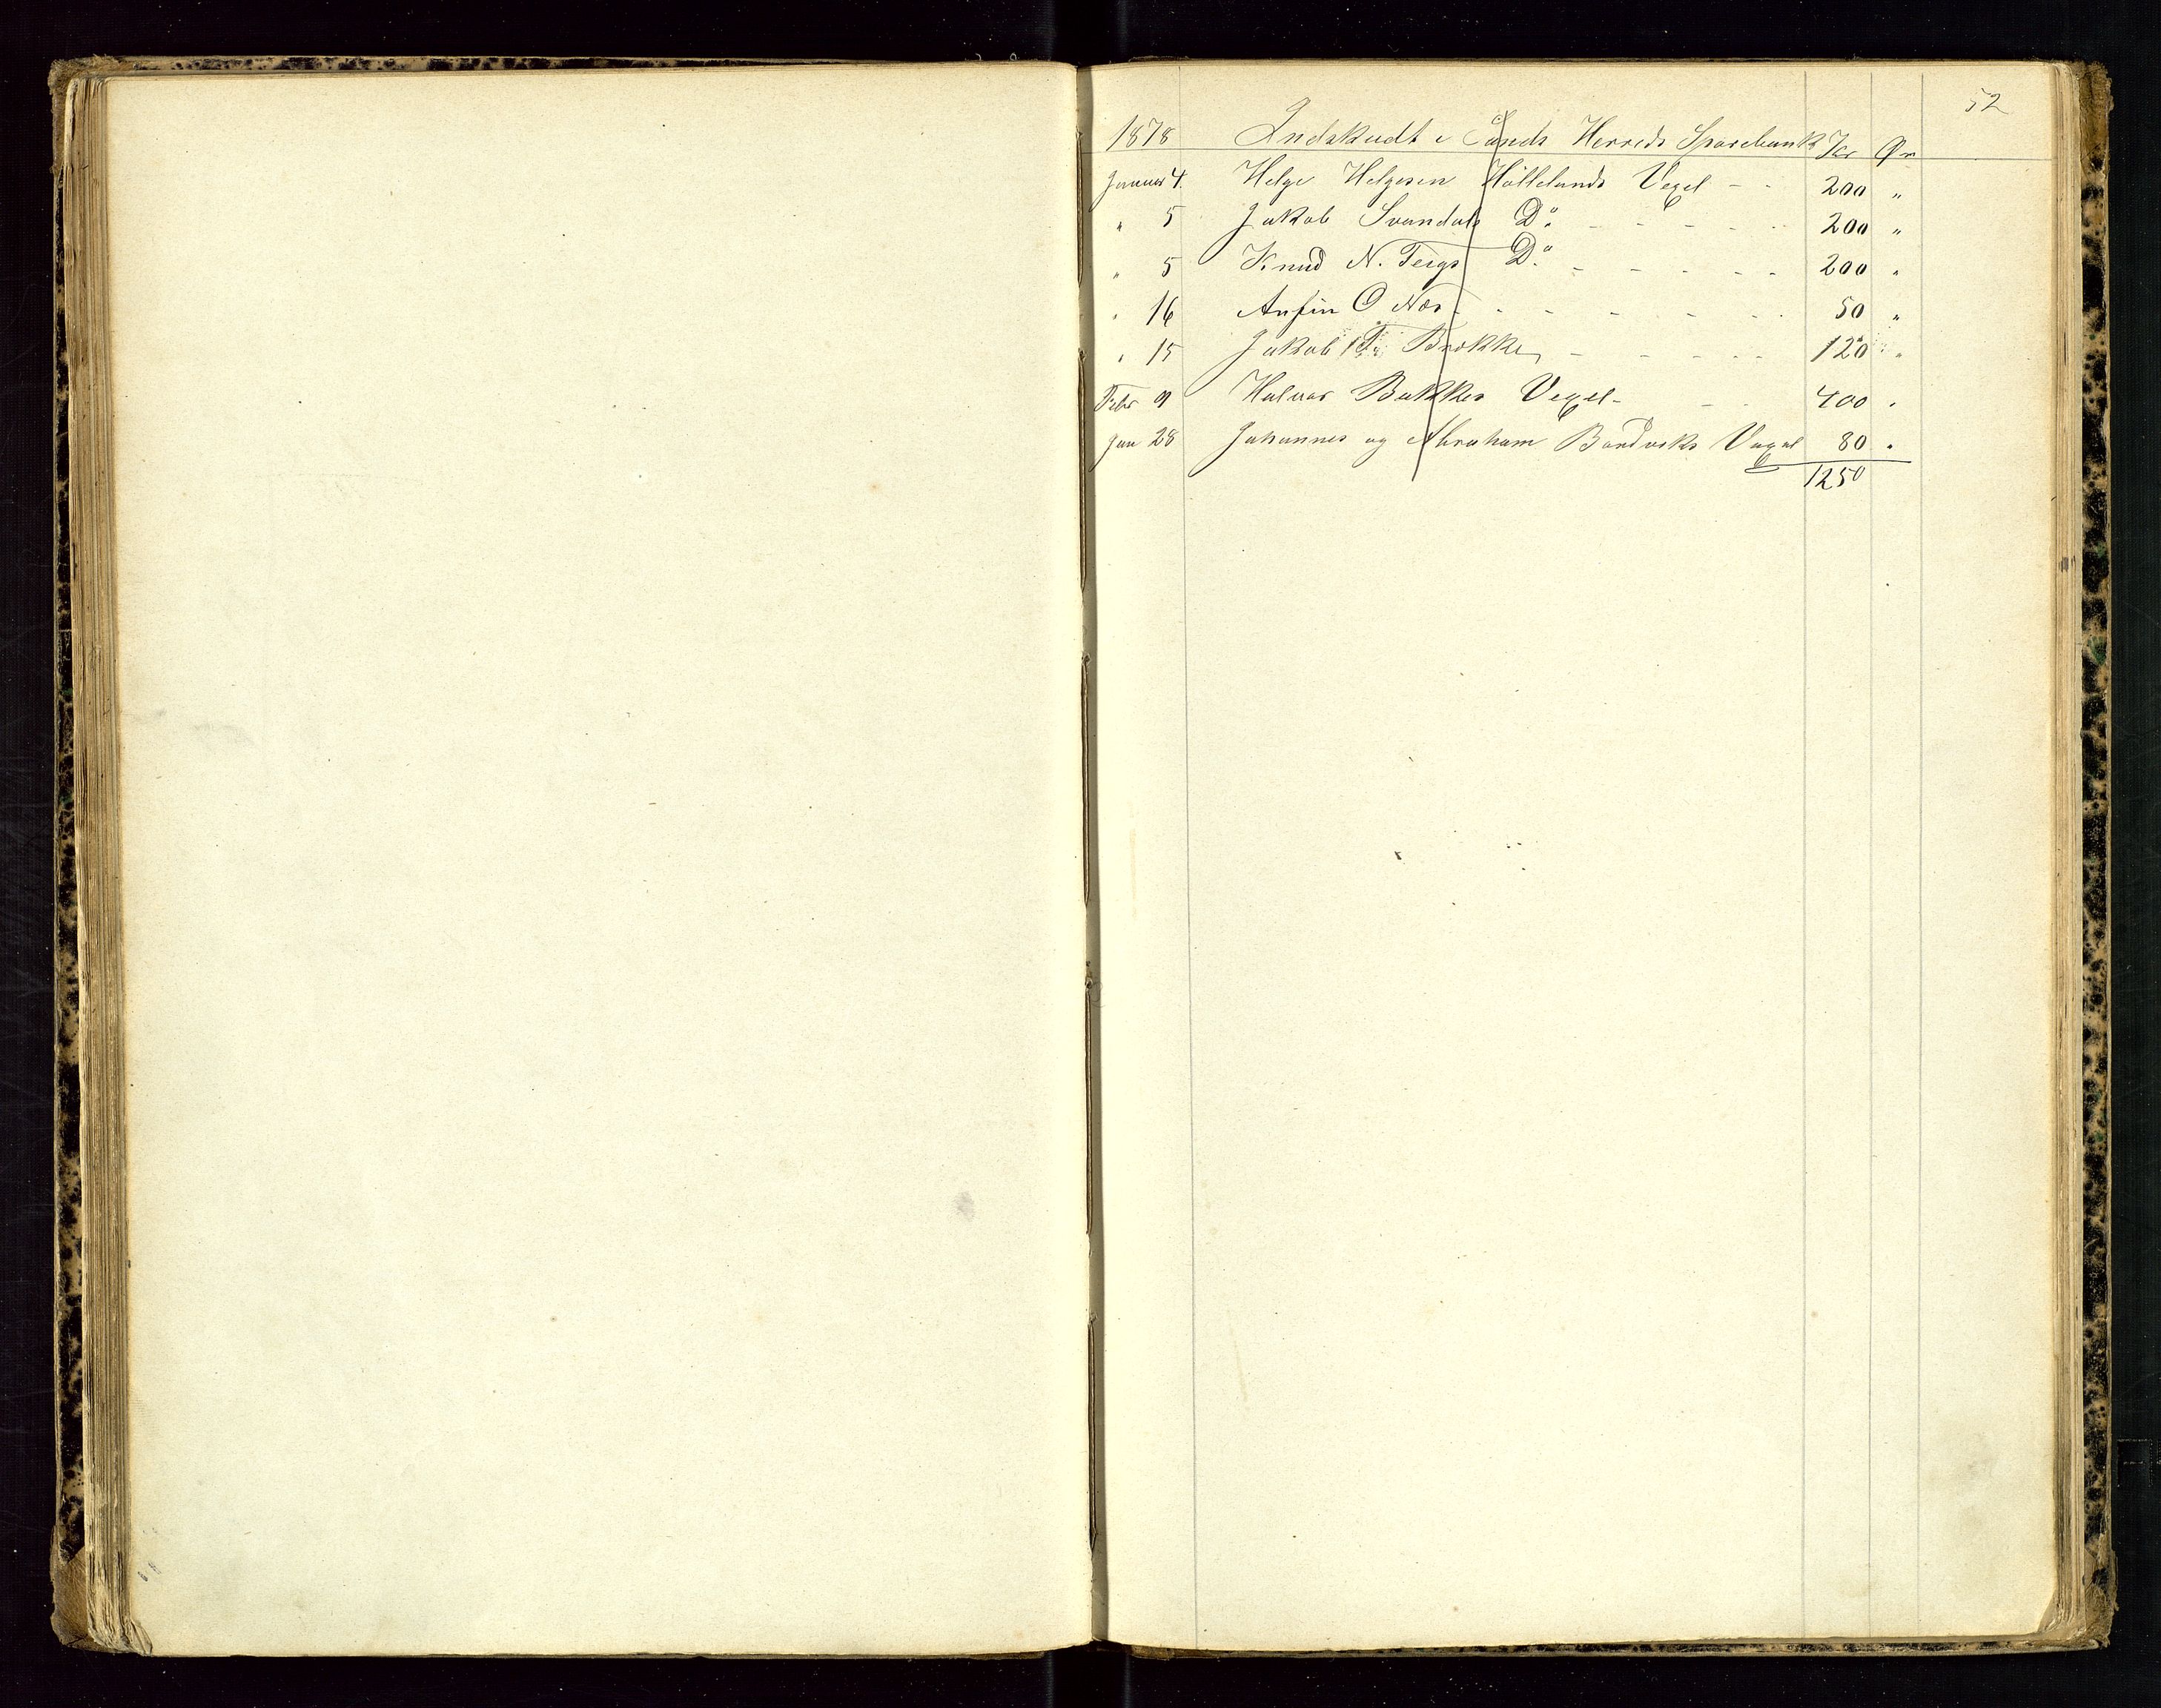 52
1878 Indskudt i Sands Herreds Sparebank Kr Ør
Januar 4. Helge Helgesen Høllelands Vexel - - 200 "
" 5 Jakob Svandals Do. - - - - - 200 "
" 5 Knud N. Teigs Do. - - - - - 200 "
" 16 Anfin O Næs - - - - - 50 "
" 15 Jakob T. Brokke - - - - 120 "
Febr 9 Halvor Bakkes Vexel - - - 400 "
Jan 28 Johannes og Abraham Bandviks Vexel 80 "
1250